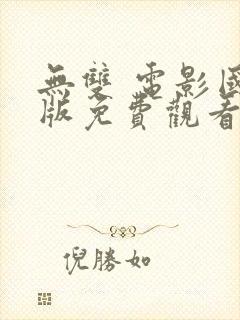 無雙 電影國
版免費觀看
倪勝如